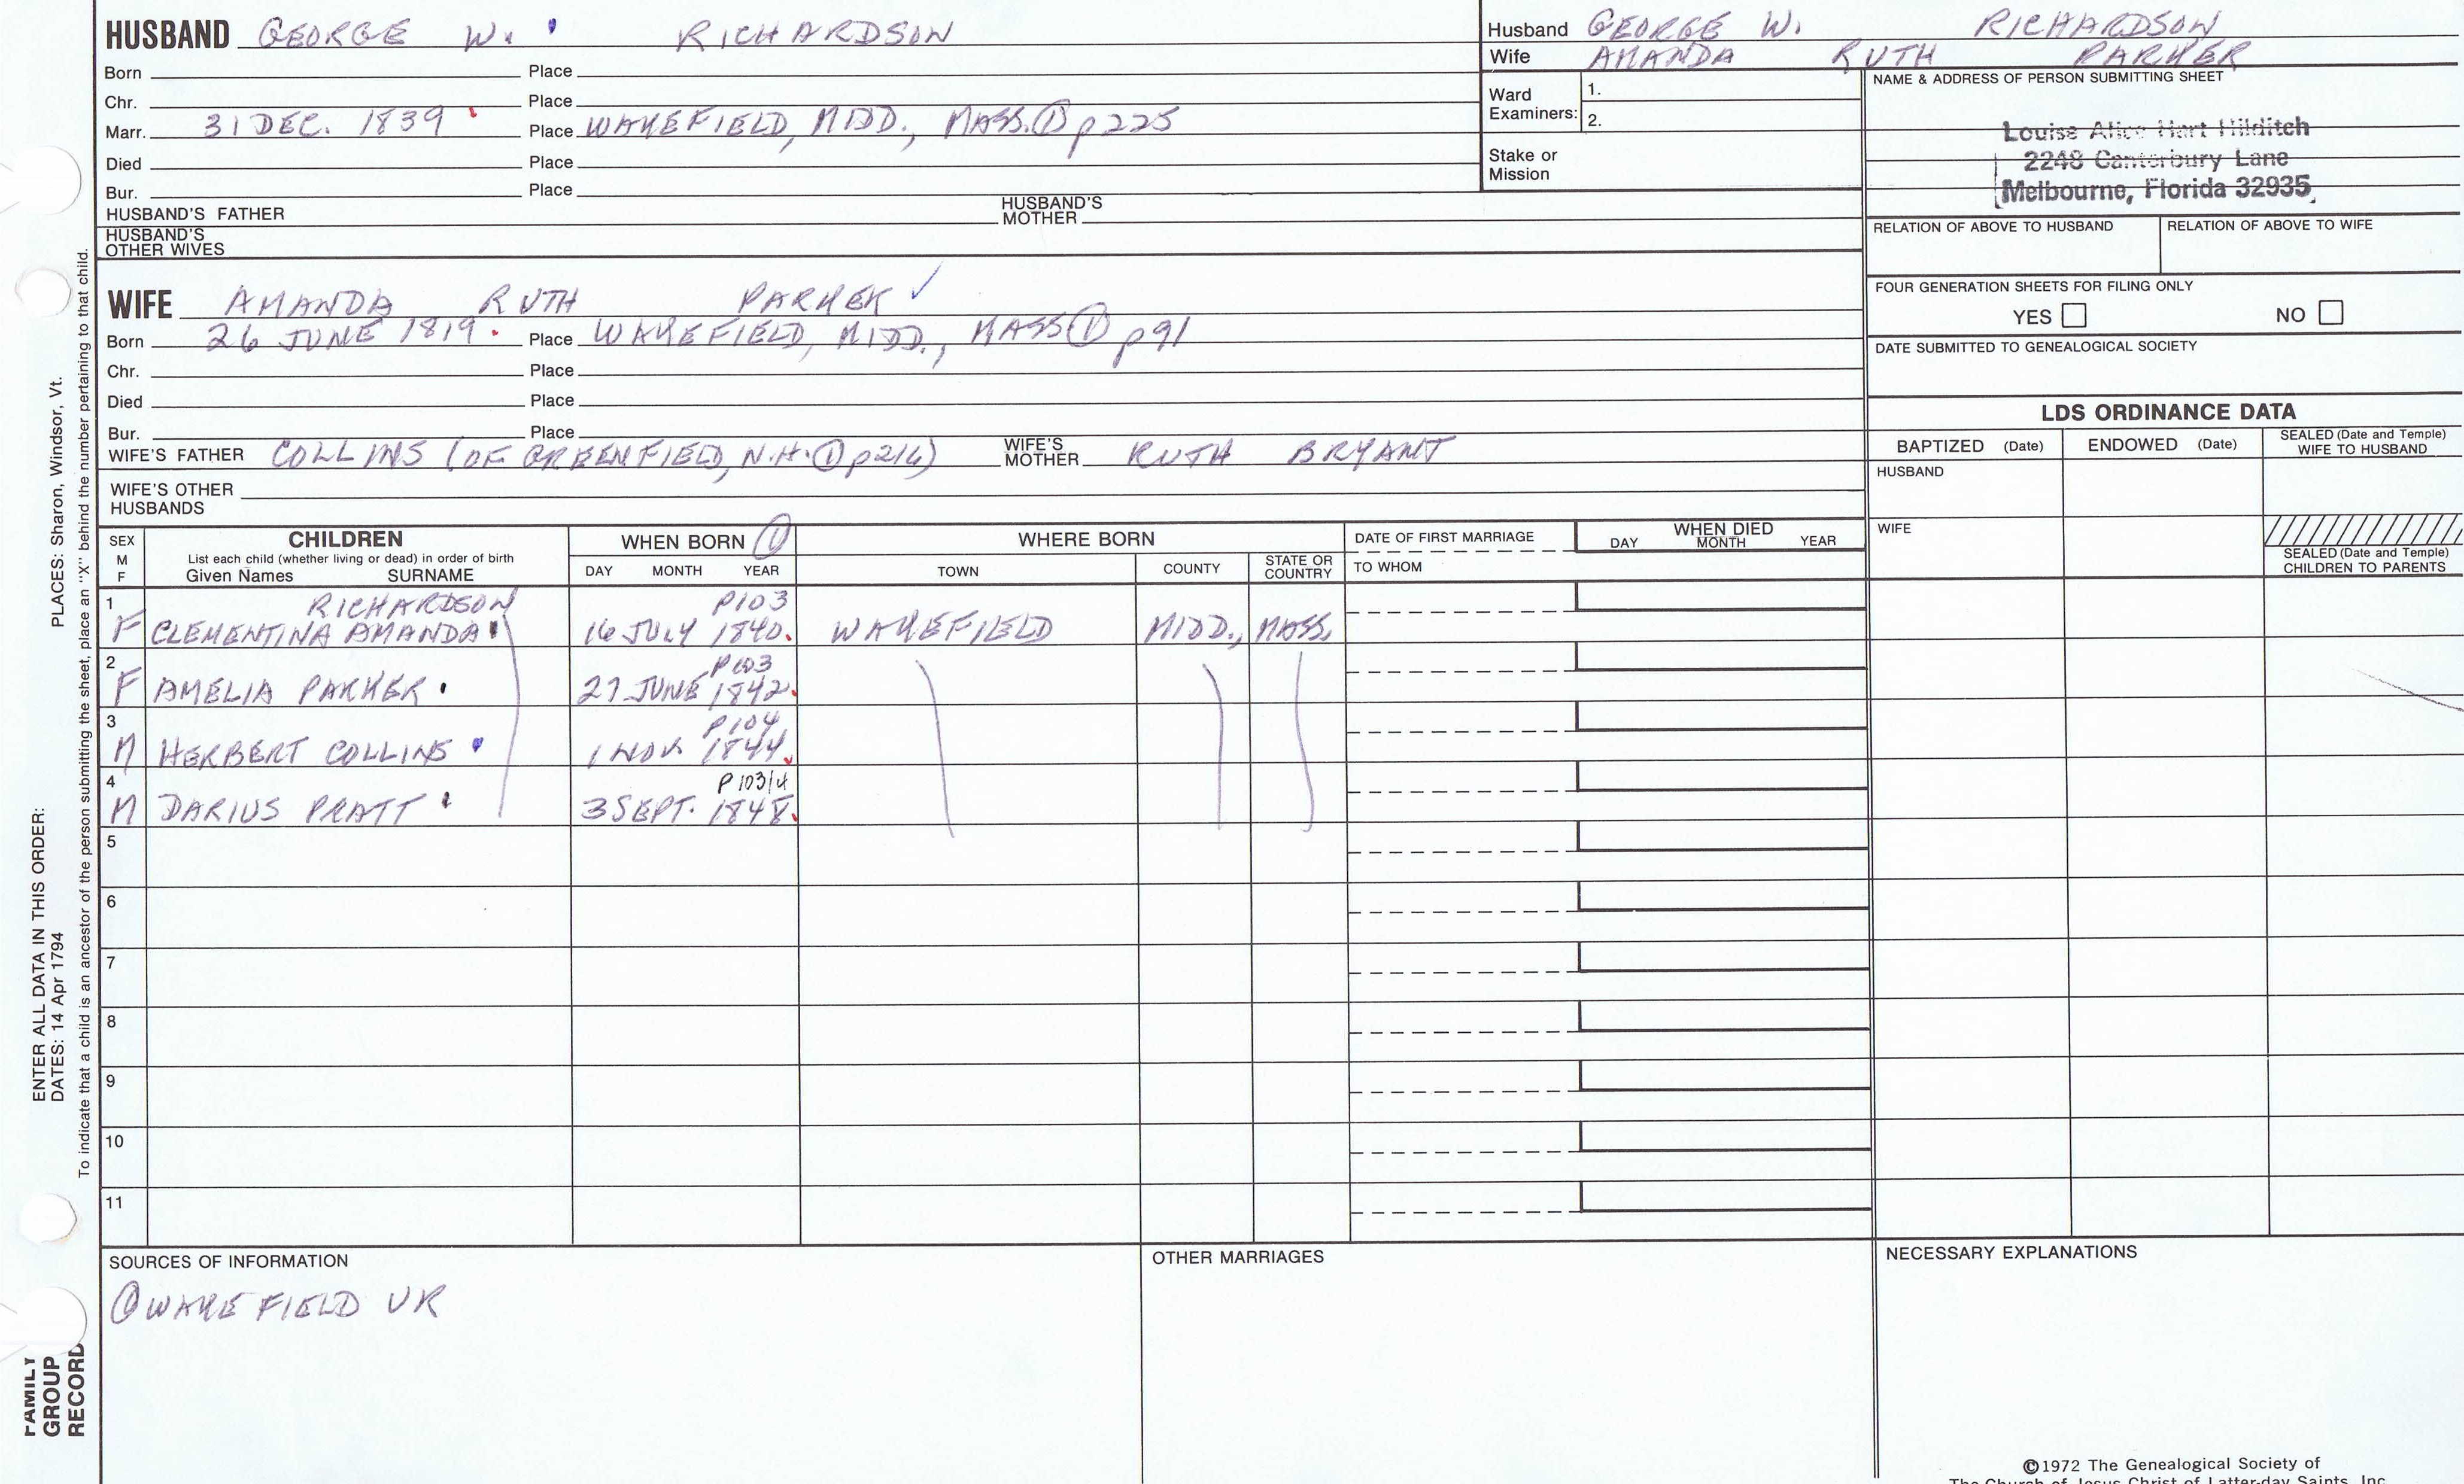 HUSBAND GEORGE W. RICHARDSON
Born Place
Chr. Place
Marr. 31 DEC. 1839 Place WAKEFIELD, MIDD., MASS. ① p225
Died Place
Bur. Place
HUSBAND'S FATHER HUSBAND'S MOTHER
HUSBAND'S OTHER WIVES
Husband GEORGE W. RICHARDSON
Wife AMANDA RUTH PARKER
Ward Examiners: 1.
2.
Stake or Mission
NAME & ADDRESS OF PERSON SUBMITTING SHEET
Louise Alice Hart Hilditch
2248 Canterbury Lane
Melbourne, Florida 32935
RELATION OF ABOVE TO HUSBAND RELATION OF ABOVE TO WIFE
FOUR GENERATION SHEETS FOR FILING ONLY
YES NO
DATE SUBMITTED TO GENEALOGICAL SOCIETY
WIFE AMANDA RUTH PARKER ✓
Born 26 JUNE 1819. Place WAKEFIELD, MIDD., MASS ① p91
Chr. Place
Died Place
Bur. Place
WIFE'S FATHER COLLINS (OF GREENFIELD, N.H. ① p214) WIFE'S MOTHER RUTH BRYANT
WIFE'S OTHER HUSBANDS
LDS ORDINANCE DATA
BAPTIZED (Date) ENDOWED (Date) SEALED (Date and Temple) WIFE TO HUSBAND
HUSBAND
WIFE
SEALED (Date and Temple) CHILDREN TO PARENTS
SEX M F CHILDREN
List each child (whether living or dead) in order of birth
Given Names SURNAME
WHEN BORN ①
DAY MONTH YEAR
WHERE BORN
TOWN COUNTY STATE OR COUNTRY
DATE OF FIRST MARRIAGE
TO WHOM
WHEN DIED
DAY MONTH YEAR
1 RICHARDSON P103
F CLEMENTINA AMANDA 16 JULY 1840. WAKEFIELD MIDD., MASS.
2 P103
F AMELIA PARKER 27 JUNE 1842.
3 P104
M HERBERT COLLINS 1 NOV. 1844
4 P103/4
M DARIUS PRATT 3 SEPT. 1848.
5
6
7
8
9
10
11
SOURCES OF INFORMATION
① WAKEFIELD VR
OTHER MARRIAGES
NECESSARY EXPLANATIONS
©1972 The Genealogical Society of
The Church of Jesus Christ of Latter-day Saints, Inc.
ENTER ALL DATA IN THIS ORDER:
DATES: 14 Apr 1794 PLACES: Sharon, Windsor, Vt.
To indicate that a child is an ancestor of the person submitting the sheet, place an "X" behind the number pertaining to that child.
FAMILY
GROUP
RECORD